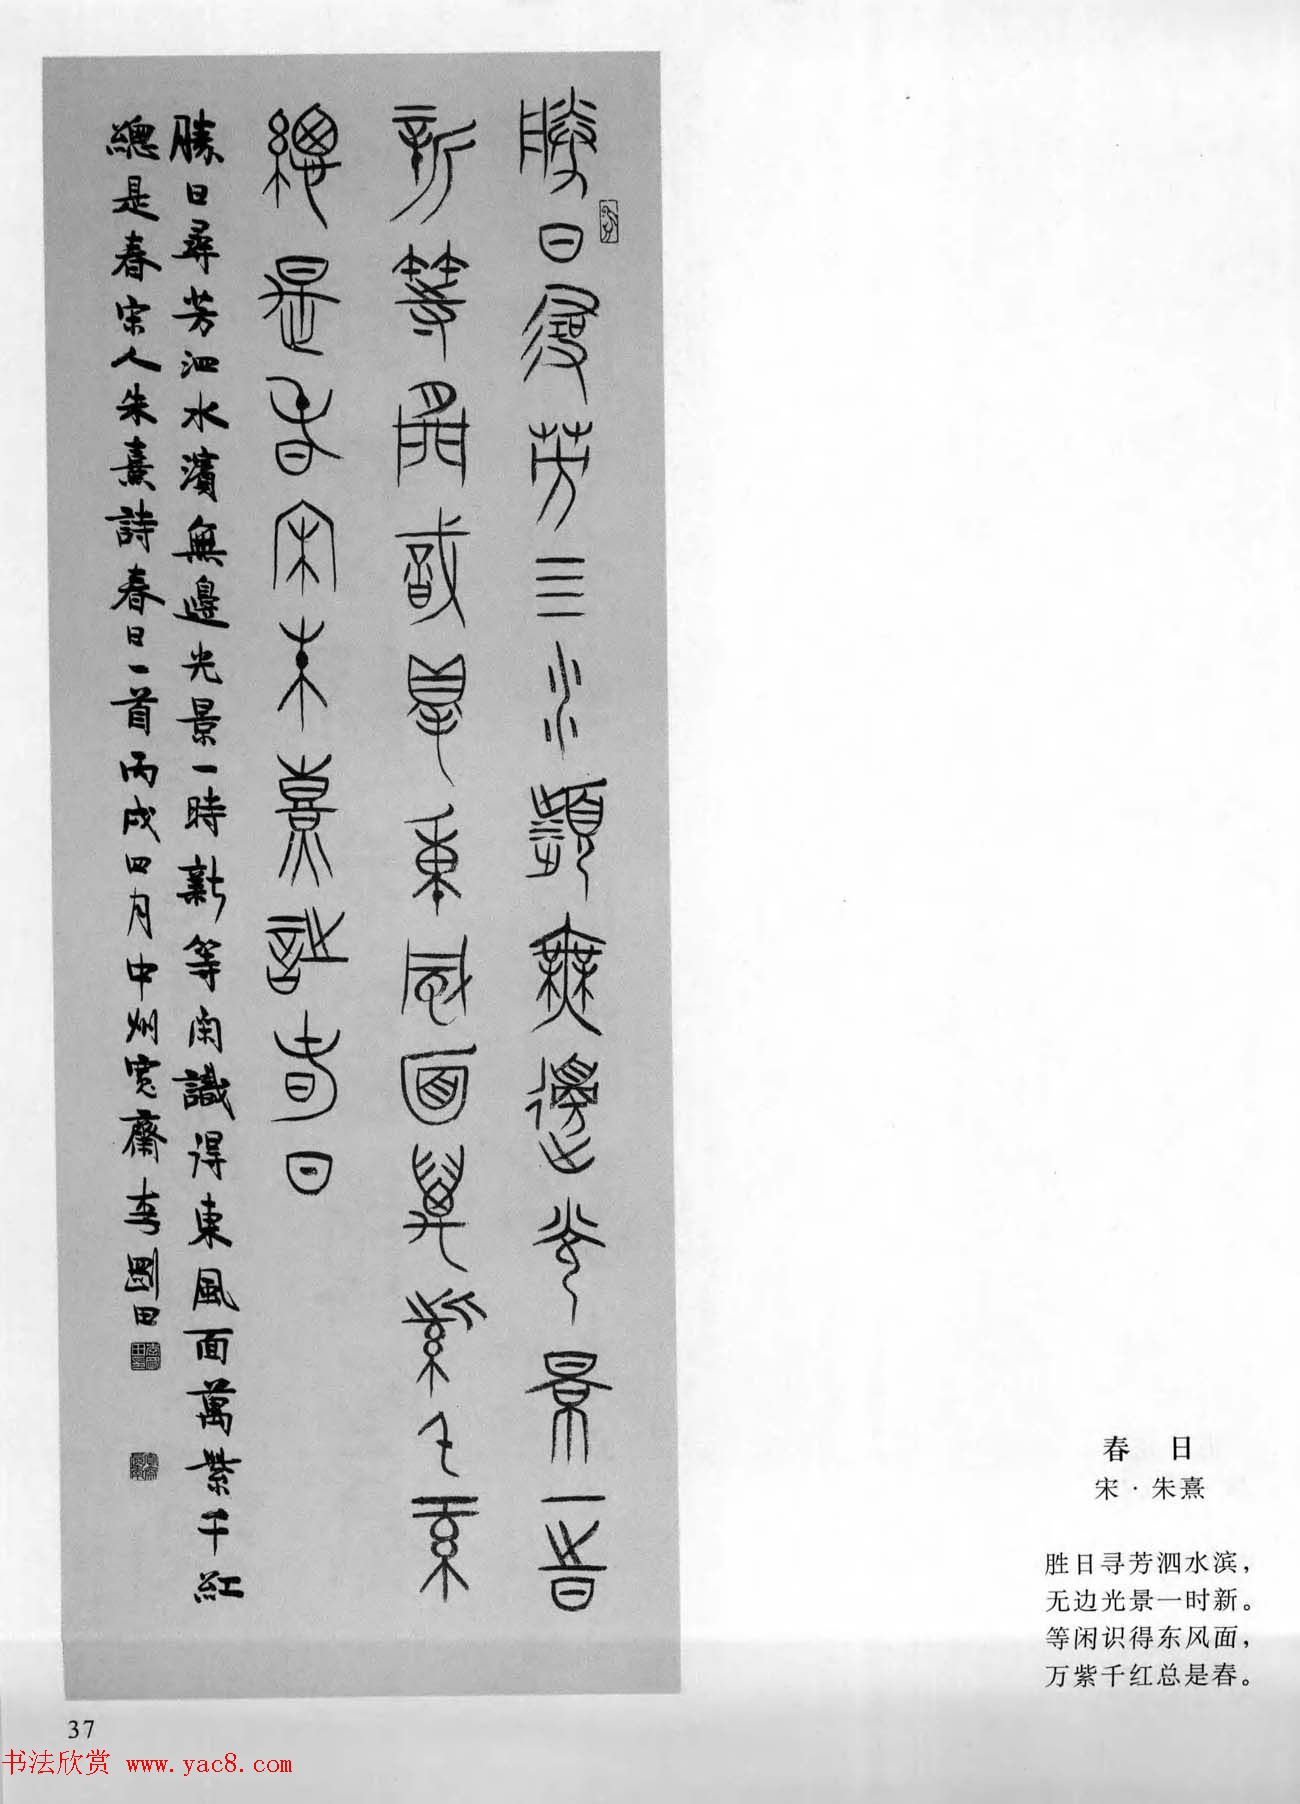 勝日尋芳三水瀕無邊光景一時
新等閒識尋東風面萬紫千紅
總是春宋朱熹詩春日
勝日尋芳泗水濱無邊光景一時新等閑識得東風面萬紫千紅
總是春宋人朱熹詩春日一首丙戌四月中州寬齋李剛田
春 日
宋·朱熹
胜日寻芳泗水滨，
无边光景一时新。
等闲识得东风面，
万紫千红总是春。
37
书法欣赏 www.yac8.com